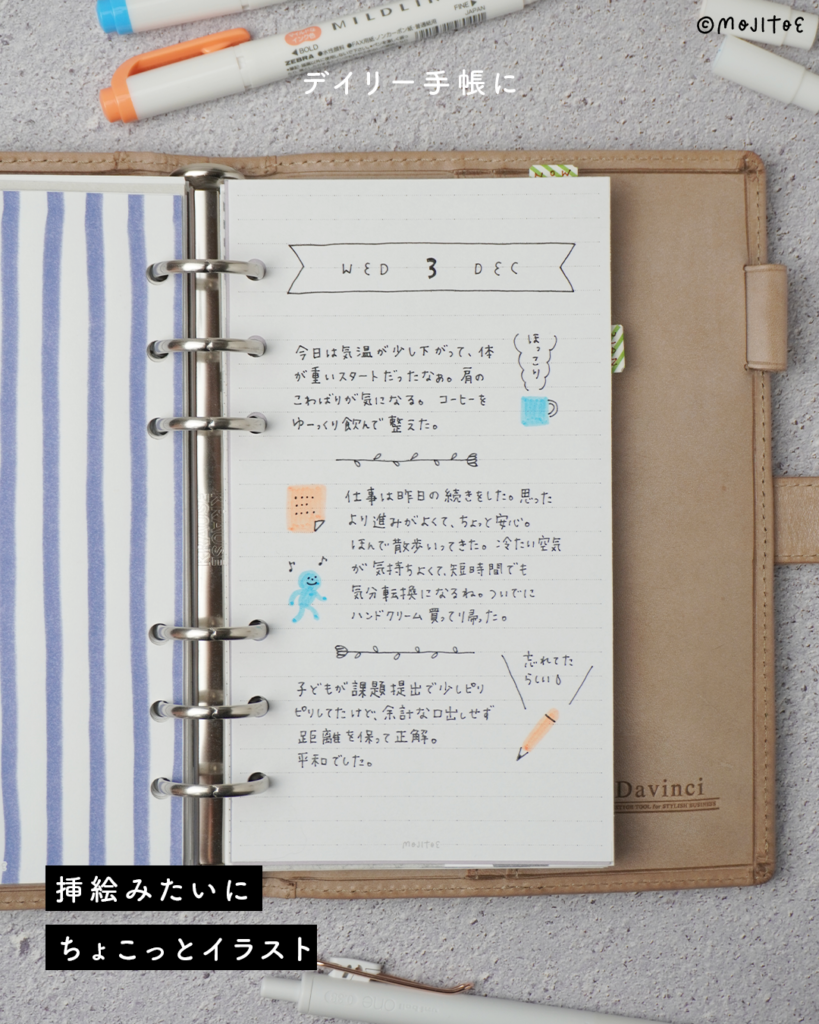 ©MOJITOE
MILDLINER
BOLD
ZEBRA
FINE
JAPAN
デイリー手帳に
NOW
WED 3 DEC
今日は気温が少し下がって、体
が重いスタートだったなぁ。肩の
こわばりが気になる。コーヒーを
ゆーっくり飲んで整えた。
ほっこり
仕事は昨日の続きをした。思った
より進みがよくて、ちょっと安心。
ほんで散歩いってきた。冷たい空気
が気持ちよくて、短時間でも
気分転換になるね。ついでに
ハンドクリーム買って帰った。
忘れてた
らしい
子どもが課題提出で少しピリ
ピリしてたけど、余計な口出しせず
距離を保って正解。
平和でした。
MOJITOE
Davinci
挿絵みたいに
ちょこっとイラスト